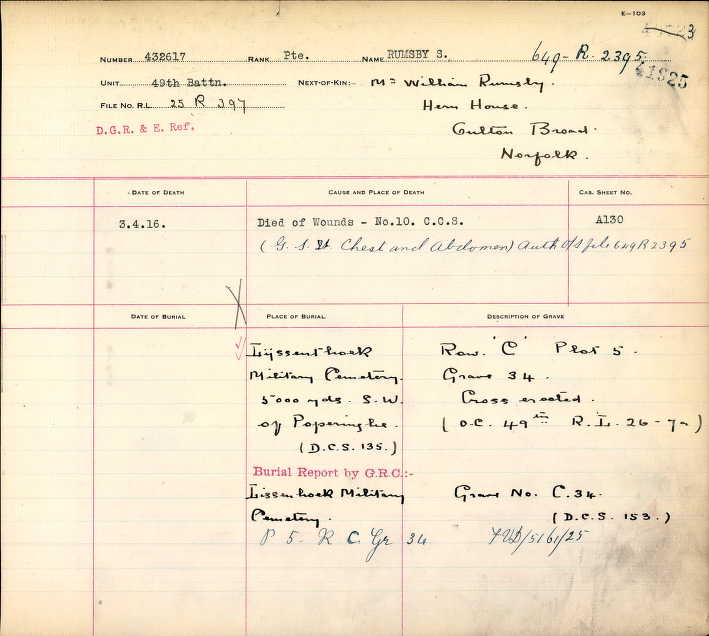 E-103
NUMBER 432617 RANK Pte. NAME RUMSBY S. 649-R-2395.
41825
UNIT 49th Battn. NEXT-OF-KIN:- Mr William Rumsby.
FILE NO. R.L. 25 R 397 Hern House.
D.G.R. & E. Ref. Oulton Broad.
Norfolk.
DATE OF DEATH CAUSE AND PLACE OF DEATH CAS. SHEET NO.
3.4.16. Died of Wounds - No.10. C.C.S. A130
(G. S. Chest and Abdomen) Auth O/S file 649R2395
DATE OF BURIAL PLACE OF BURIAL DESCRIPTION OF GRAVE
Lijssenthoek Row. 'C' Plot 5.
Military Cemetery. Grave 34.
5000 yds. S.W. Cross erected.
of Poperinghe. (O.C. 49th R.L. 26-7a)
(D.C.S. 135.)
Burial Report by G.R.C:-
Lissenhoek Military Grave No. C.34.
Cemetery. (D.C.S. 153.)
P 5. R C. Gr 34 /5161/25